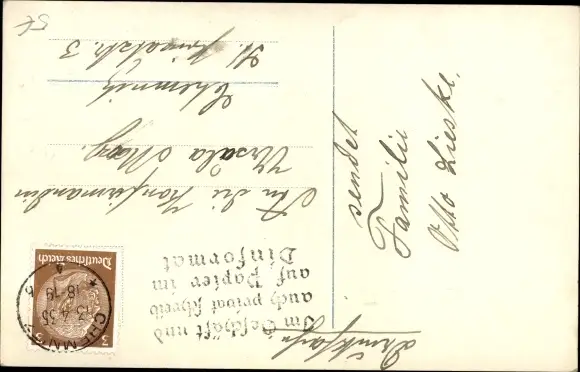 Drucksache
Im Geschäft und
auch privat schreib
auf Papier im
Dinformat
3
3
Deutsches Reich
CHEMNITZ
13.4.35
18-19
An die Konfirmandin
Ursula May.
Chemnitz
3
sendet
Familie
Otto Lieske.